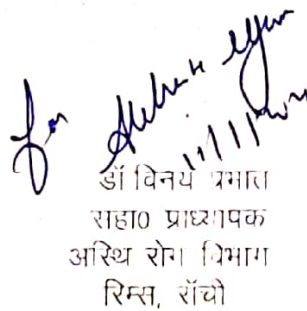 for
11/11/20
डॉ विनय प्रभात
सहा० प्राध्यापक
अस्थि रोग विभाग
रिम्स, राँची